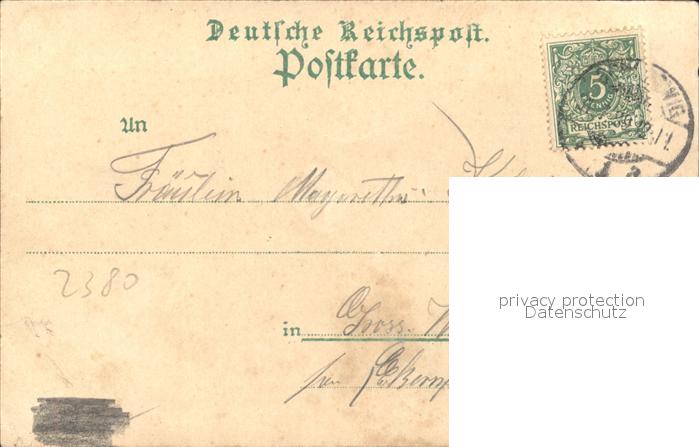 Deutsche Reichspost.
Postkarte.
5
PFENNIG
REICHSPOST
An
Fräulein Margarethe
2380
privacy protection
Datenschutz
in Gross
per